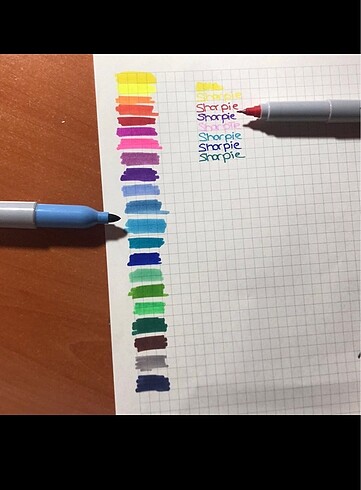 Sharpie
Sharpie
Sharpie
Sharpie
Sharpie
Sharpie
Sharpie